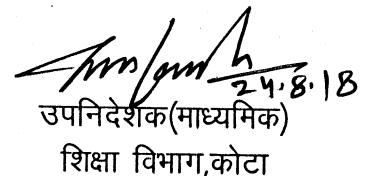 24.8.18
उपनिदेशक(माध्यमिक)
शिक्षा विभाग,कोटा